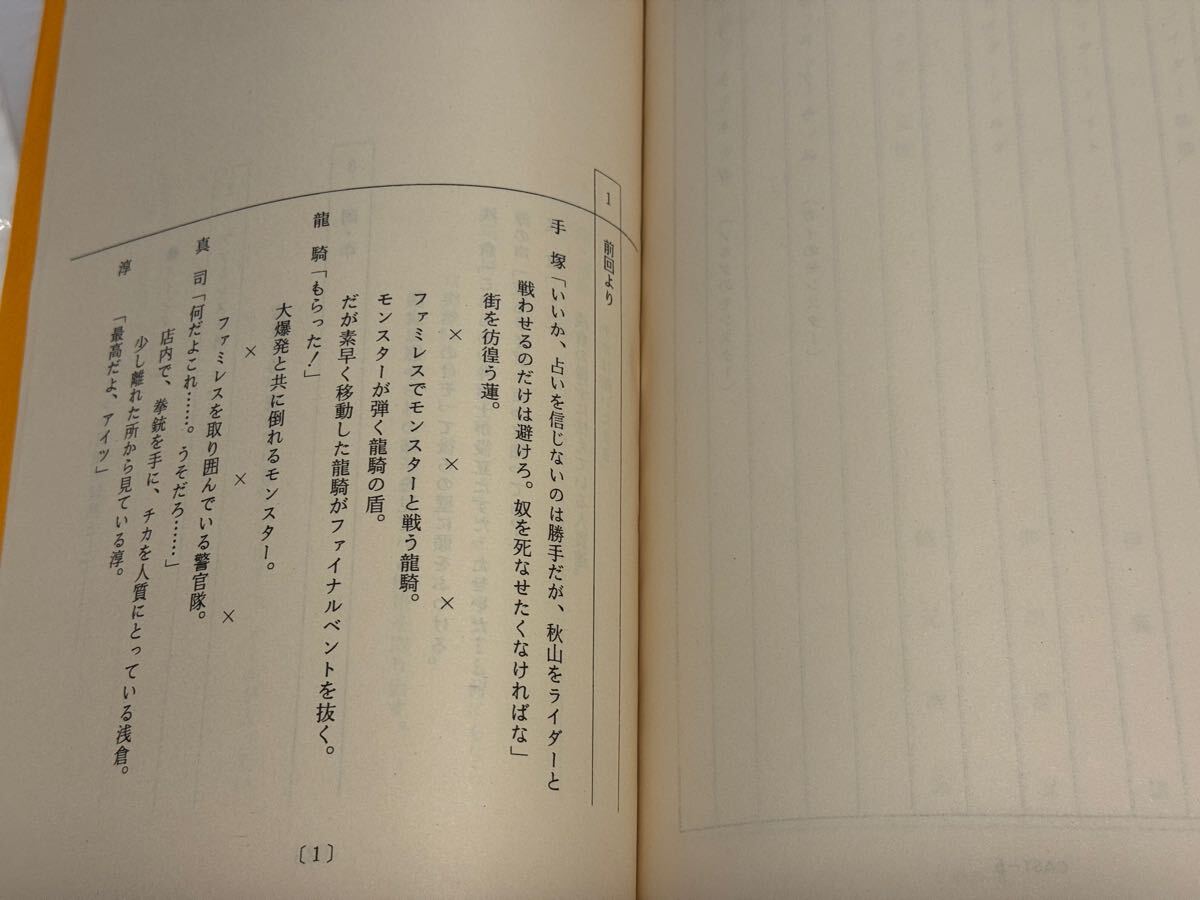 1
前回より
手塚「いいか、占いを信じないのは勝手だが、秋山をライダーと
戦わせるのだけは避けろ。奴を死なせたくなければな」
街を彷徨う蓮。
× × ×
ファミレスでモンスターと戦う龍騎。
モンスターが弾く龍騎の盾。
だが素早く移動した龍騎がファイナルベントを抜く。
龍騎「もらった!」
大爆発と共に倒れるモンスター。
× × ×
ファミレスを取り囲んでいる警官隊。
真司「何だよこれ……。うそだろ……」
店内で、拳銃を手に、チカを人質にとっている浅倉。
少し離れた所から見ている淳。
淳「最高だよ、アイツ」
〔1〕